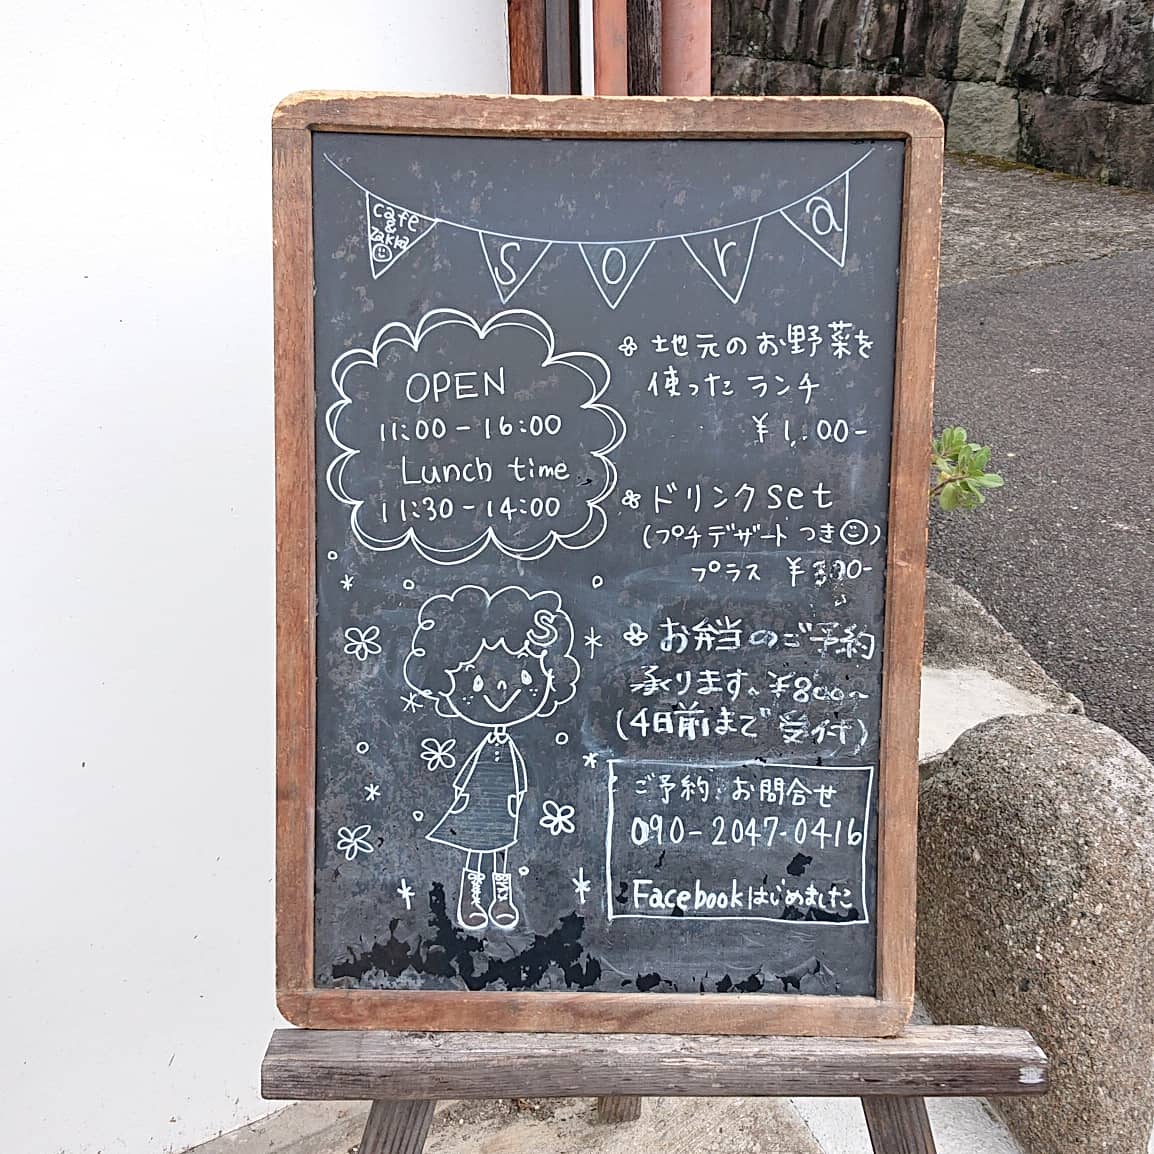 cafe
&
zakka
sora
OPEN
11:00-16:00
Lunch time
11:30-14:00
地元のお野菜を
使ったランチ
ドリンクset
(プチデザートつき)
プラス
お弁当のご予約
承ります。¥800~
(4日前まで受付)
ご予約・お問合せ
090-2047-0416
Facebookはじめました
S